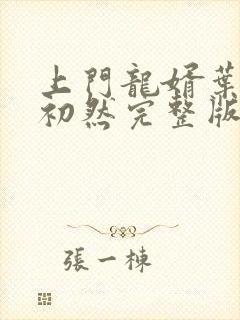 上門龍婿葉
初然完整版
張一棟